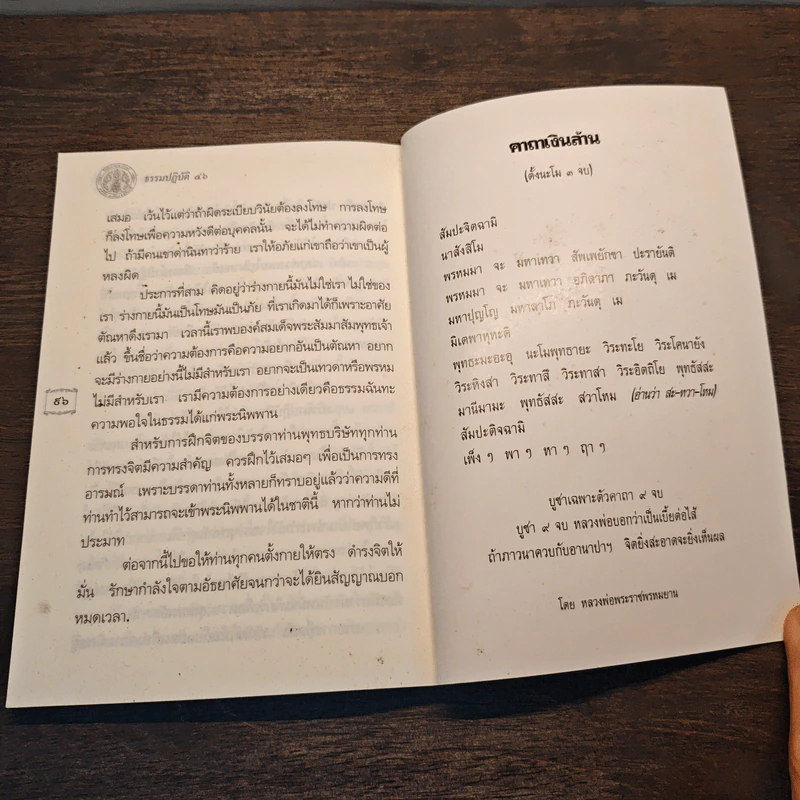 ธรรมปฏิบัติ ๔๖
เสมอ เว้นไว้แต่ว่าถ้าผิดระเบียบวินัยต้องลงโทษ การลงโทษ
ก็ลงโทษเพื่อความหวังดีต่อบุคคลนั้น จะได้ไม่ทำความผิดต่อ
ไป ถ้ามีคนเขาด่านินทาว่าร้าย เราให้อภัยแก่เขาถือว่าเขาเป็นผู้
หลงผิด
ประการที่สาม คิดอยู่ว่าร่างกายนี้มันไม่ใช่เรา ไม่ใช่ของ
เรา ร่างกายนี้มันเป็นโทษมันเป็นภัย ที่เราเกิดมาได้ก็เพราะอาศัย
ตัณหาดึงเรามา เวลานี้เราพบองค์สมเด็จพระสัมมาสัมพุทธเจ้า
แล้ว ขึ้นชื่อว่าความต้องการคือความอยากอันเป็นตัณหา อยาก
จะมีร่างกายอย่างนี้ไม่มีสำหรับเรา อยากจะเป็นเทวดาหรือพรหม
ไม่มีสำหรับเรา เรามีความต้องการอย่างเดียวคือธรรมฉันทะ
ความพอใจในธรรมได้แก่พระนิพพาน
สำหรับการฝึกจิตของบรรดาท่านพุทธบริษัททุกท่าน
การทรงจิตมีความสำคัญ ควรฝึกไว้เสมอๆ เพื่อเป็นการทรง
อารมณ์ เพราะบรรดาท่านทั้งหลายก็ทราบอยู่แล้วว่าความดีที่
ท่านทำไว้สามารถจะเข้าพระนิพพานได้ในชาตินี้ หากว่าท่านไม่
ประมาท
ต่อจากนี้ไปขอให้ท่านทุกคนตั้งกายให้ตรง ดำรงจิตให้
มั่น รักษากำลังใจตามอัธยาศัยจนกว่าจะได้ยินสัญญาณบอก
หมดเวลา.
๕๖
คาถาเงินล้าน
(ตั้งนะโม ๓ จบ)
สัมปะจิตฉามิ
นาสังสิโม
พรหมมา จะ มหาเทวา สัพเพยักขา ปะรายันติ
พรหมมา จะ มหาเทวา อภิลาภา ภะวันตุ เม
มหาปุญโญ มหาลาโภ ภะวันตุ เม
มิเตพาหุหะติ
พุทธะมะอะอุ นะโมพุทธายะ วิระทะโย วิระโคนายัง
วิระหิงสา วิระทาสี วิระทาสา วิระอิตถิโย พุทธัสสะ
มานีมามะ พุทธัสสะ สวาโหม (อ่านว่า สะ-หวา-โหม)
สัมปะติจฉามิ
เพ็ง ๆ พา ๆ หา ๆ ฤา ๆ
บูชาเฉพาะตัวคาถา ๙ จบ
บูชา ๙ จบ หลวงพ่อบอกว่าเป็นเบี้ยต่อไส้
ถ้าภาวนาควบกับอานาปาฯ จิตยิ่งสะอาดจะยิ่งเห็นผล
โดย หลวงพ่อพระราชพรหมยาน